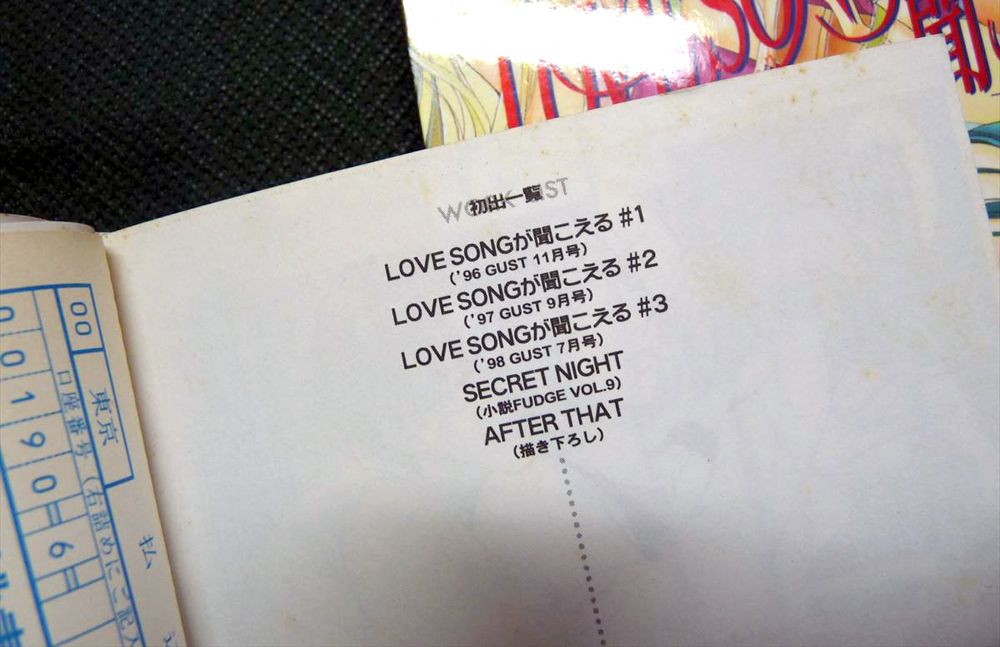 SONG
聞
WORK LIST
初出一覧
LOVE SONGが聞こえる #1
('96 GUST 11月号)
LOVE SONGが聞こえる #2
('97 GUST 9月号)
LOVE SONGが聞こえる #3
('98 GUST 7月号)
SECRET NIGHT
(小説FUDGE VOL.9)
AFTER THAT
(描き下ろし)
00
東京
口座番号(右詰めにご記入
0
0
1
9
0
6
払